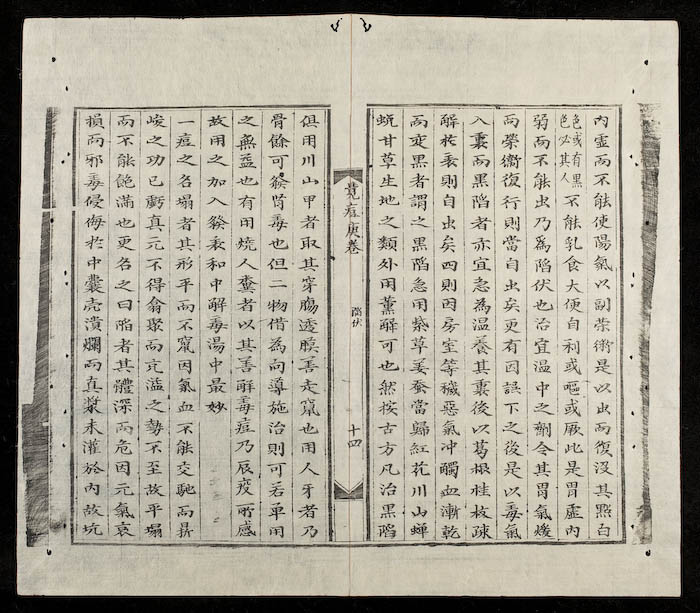 內虛而不能使陽氣以副荣衛是以出而復沒其點白
色或有黑
色必其人
不能乳食大便自利或嘔或厥此是胃虛內
弱而不能出乃為陷伏也治宜温中之劑令其胃氣煖
而榮衛復行則當自出矣更有因誤下之後是以毒氣
入裏而黑陷者亦宜急為温養其裏後以葛根桂枝疎
解於表則自出矣四則因房室等穢惡氣冲觸血漸乾
而变黑者謂之黑陷急用紫草姜蚕當歸紅花川山蟬
蛻甘草生地之類外用薰解可也然按古方凡治黑陷
痘庚卷
陷伏
十四
俱用川山甲者取其穿腸透膜善走竄也用人牙者乃
骨餘可發腎毒也但二物借為向導施治則可若單用
之無益也有用燒人糞者以其善解毒痘乃辰疫所感
故用之加入發表和中解毒湯中最妙
一痘之名塌者其形平而不竄因氣血不能交馳而昇
峻之功已虧真元不得翕聚而亢溢之勢不至故平塌
而不能飽滿也更名之曰陷者其體深而危因元氣衰
損而邪毒侵侮於中囊壳潰爛而真漿未灌於內故坑